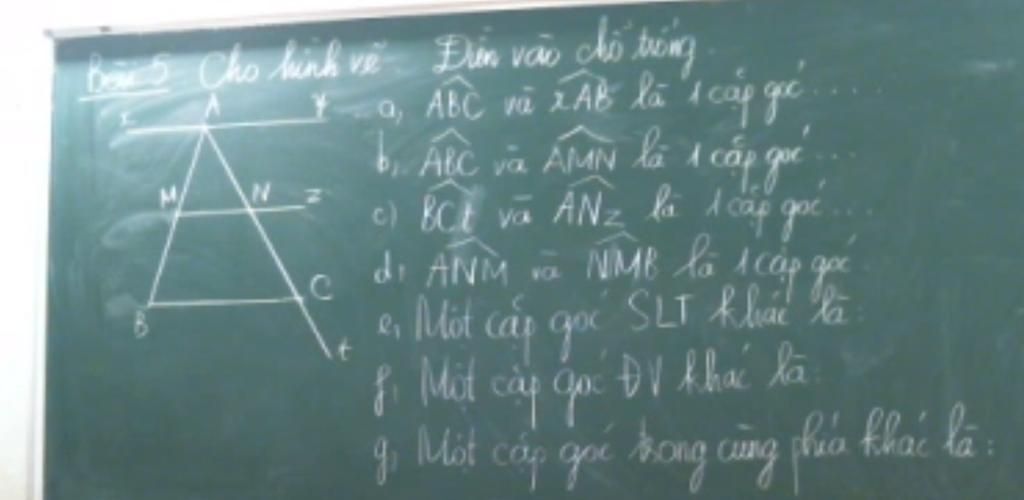 Bài 5 Cho hình vẽ Điền vào chỗ trống.
x A y
M N z
B C
t
a, ABC và xAB là 1 cặp góc .....
b, ABC và AMN là 1 cặp góc ...
c) BCt và ANz là 1 cặp góc ...
d, ANM và NMB là 1 cặp góc
e, Một cặp góc SLT khác là:
f, Một cặp góc ĐV khác là:
g, Một cặp góc trong cùng phía khác là: